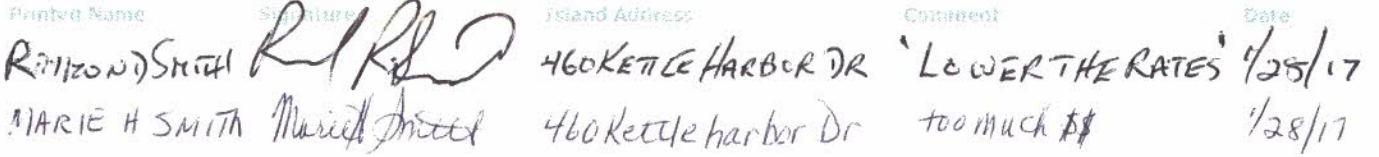 Printed Name Signature Island Address Comment Date
Smith 460 KETTLE HARBOR DR 'LOWER THE RATES' 1/28/17
MARIE H SMITH Marie H Smith 460 Kettle harbor Dr too much $$ 1/28/17